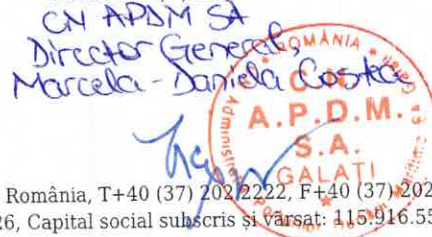 CN APDM SA
Director General,
Marcela-Daniela Costea
ROMÂNIA
A.P.D.M.
S.A.
GALAȚI
România, T+40 (37) 202 2222, F+40 (37) 202
26, Capital social subscris și vărsat: 115.916.55